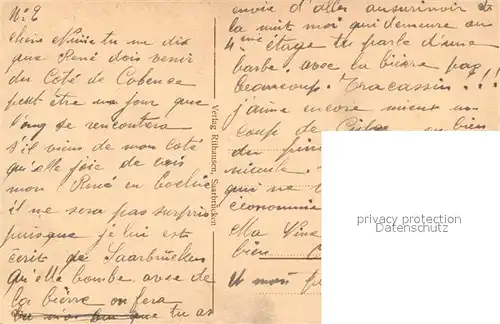 N: 2
chère Ninie tu me dis
que René dois venir
du Coté de Cobence
peut être un jour que
l'on se rencontrera
s'il viens de mon coté
qu'elle joie de vois
mon René en bochie
il ne sera pas surpris
puisque je lui est
écrit de Saarbrücken
qu'elle bombe avec de
la bière on fera
que tu as
Verlag Rithausen, Saarbrücken
envie d'aller
la nuit moi qui demeure au
4ème étage tu parle d'une
barbe. avec la bière pas
beaucoup. Tracassin. !!!
j'aime encore mieux un
coup de bien
du
qui ne
économie
Ma
bien
et mon
privacy protection
datenschutz